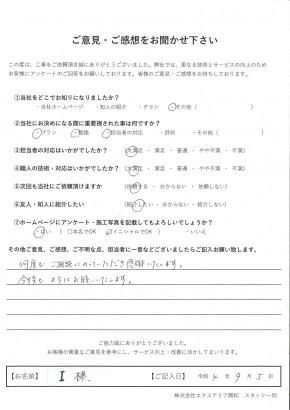 ご意見・ご感想をお聞かせ下さい
この度は、工事をご依頼頂き誠にありがとうございました。弊社では、更なる技術とサービスの向上のため
お客様にアンケートのご回答をお願いしております。皆様のご意見・ご感想をお待ちしております。
①当社をどこでお知りになりましたか？
・当社ホームページ ・知人の紹介 ・チラシ ・その他（ ）
②当社にお決めになる際に重要視された事は何ですか？
・プラン ・価格 ・担当者の対応 ・評判 ・その他（ ）
③担当者の対応はいかがでしたか？ （大満足 ・ 満足 ・ 普通 ・ やや不満 ・ 不満）
④職人の技術・対応はいかがでしたか？ （大満足 ・ 満足 ・ 普通 ・ やや不満 ・ 不満）
⑤次回も当社にご依頼頂けますか （依頼する ・ 分からない ・ 依頼しない）
⑥友人・知人に紹介したい （紹介したい ・ 分からない ・ 紹介しない）
⑦ホームページにアンケート・施工写真を記載してもよろしいでしょうか？
・はい （□本名でOK □イニシャルでOK） ・いいえ
その他ご意見、ご感想、ご不明な点、担当者に一言などございましたらご記入お願い致します。
何度も ご相談にのっていただき感謝いたします。
今後も よろしくお願いいたします。
ご協力誠にありがとうございました。
お客様の貴重なご意見を参考にし、サービス向上・改善に活かしてまいります。
【お名前】 I 様 【ご記入日】 令和 4 年 9 月 5 日
株式会社エクステリア興和 スタッフ一同